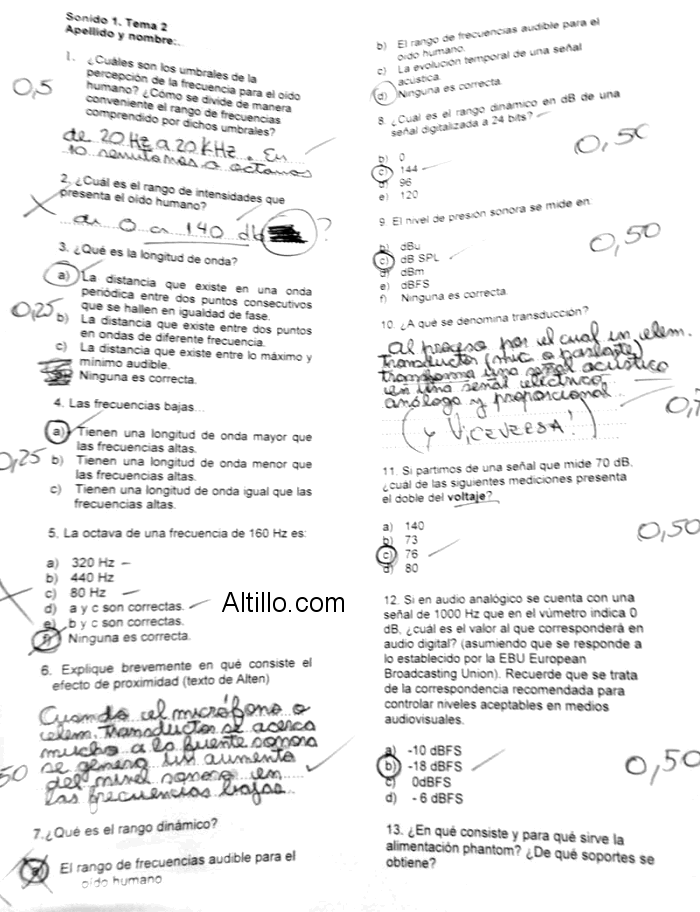 Sonido 1. Tema 2
Apellido y nombre:
1. ¿Cuáles son los umbrales de la
percepción de la frecuencia para el oído
humano? ¿Cómo se divide de manera
conveniente el rango de frecuencias
comprendido por dichos umbrales?
0,5
de 20 Hz a 20 kHz. En
10 semitonos a octavas
2. ¿Cuál es el rango de intensidades que
presenta el oído humano?
de 0 a 140 db ?
3. ¿Qué es la longitud de onda?
a) La distancia que existe en una onda
periódica entre dos puntos consecutivos
que se hallen en igualdad de fase.
0,25
b) La distancia que existe entre dos puntos
en ondas de diferente frecuencia.
c) La distancia que existe entre lo máximo y
mínimo audible.
Ninguna es correcta.
4. Las frecuencias bajas...
a) Tienen una longitud de onda mayor que
las frecuencias altas.
0,25
b) Tienen una longitud de onda menor que
las frecuencias altas.
c) Tienen una longitud de onda igual que las
frecuencias altas.
5. La octava de una frecuencia de 160 Hz es:
a) 320 Hz
b) 440 Hz
c) 80 Hz
d) a y c son correctas.
e) b y c son correctas.
f) Ninguna es correcta.
6. Explique brevemente en qué consiste el
efecto de proximidad (texto de Alten)
Cuando el micrófono o
elem. Transductor se acerca
mucho a la fuente sonora
se genera un aumento
del nivel sonoro en
las frecuencias bajas.
50
7.¿Qué es el rango dinámico?
a) El rango de frecuencias audible para el
oído humano
b) El rango de frecuencias audible para el
oído humano.
c) La evolución temporal de una señal
acústica.
d) Ninguna es correcta
8. ¿Cuál es el rango dinámico en dB de una
señal digitalizada a 24 bits?
0,50
b) 0
c) 144
d) 96
e) 120
9. El nivel de presión sonora se mide en:
0,50
b) dBu
c) dB SPL
d) dBm
e) dBFS
f) Ninguna es correcta.
10. ¿A qué se denomina transducción?
Al proceso por el cual un elem.
Transductor (mic o parlante)
transforma una señal acústica
en una señal eléctrica
análoga y proporcional
(y VICEVERSA!)
11. Si partimos de una señal que mide 70 dB.
¿cuál de las siguientes mediciones presenta
el doble del voltaje?
a) 140
b) 73
c) 76
d) 80
0,50
Altillo.com
12. Si en audio analógico se cuenta con una
señal de 1000 Hz que en el vúmetro indica 0
dB, ¿cuál es el valor al que corresponderá en
audio digital? (asumiendo que se responde a
lo establecido por la EBU European
Broadcasting Union). Recuerde que se trata
de la correspondencia recomendada para
controlar niveles aceptables en medios
audiovisuales.
a) -10 dBFS
b) -18 dBFS
c) 0dBFS
d) - 6 dBFS
0,50
13. ¿En qué consiste y para qué sirve la
alimentación phantom? ¿De qué soportes se
obtiene?